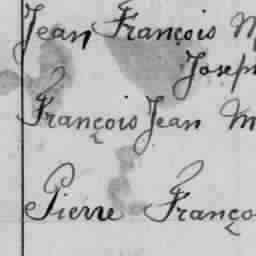 Jean François M
Josep
François Jean M
Pierre Franço